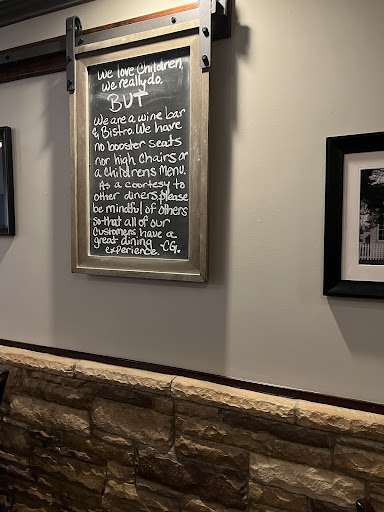 We love children,
we really do.
BUT
We are a wine bar
& Bistro. We have
no booster seats
nor high chairs or
a childrens menu.
As a courtesy to
other diners, please
be mindful of others
so that all of our
customers have a
great dining
experience. -CG.